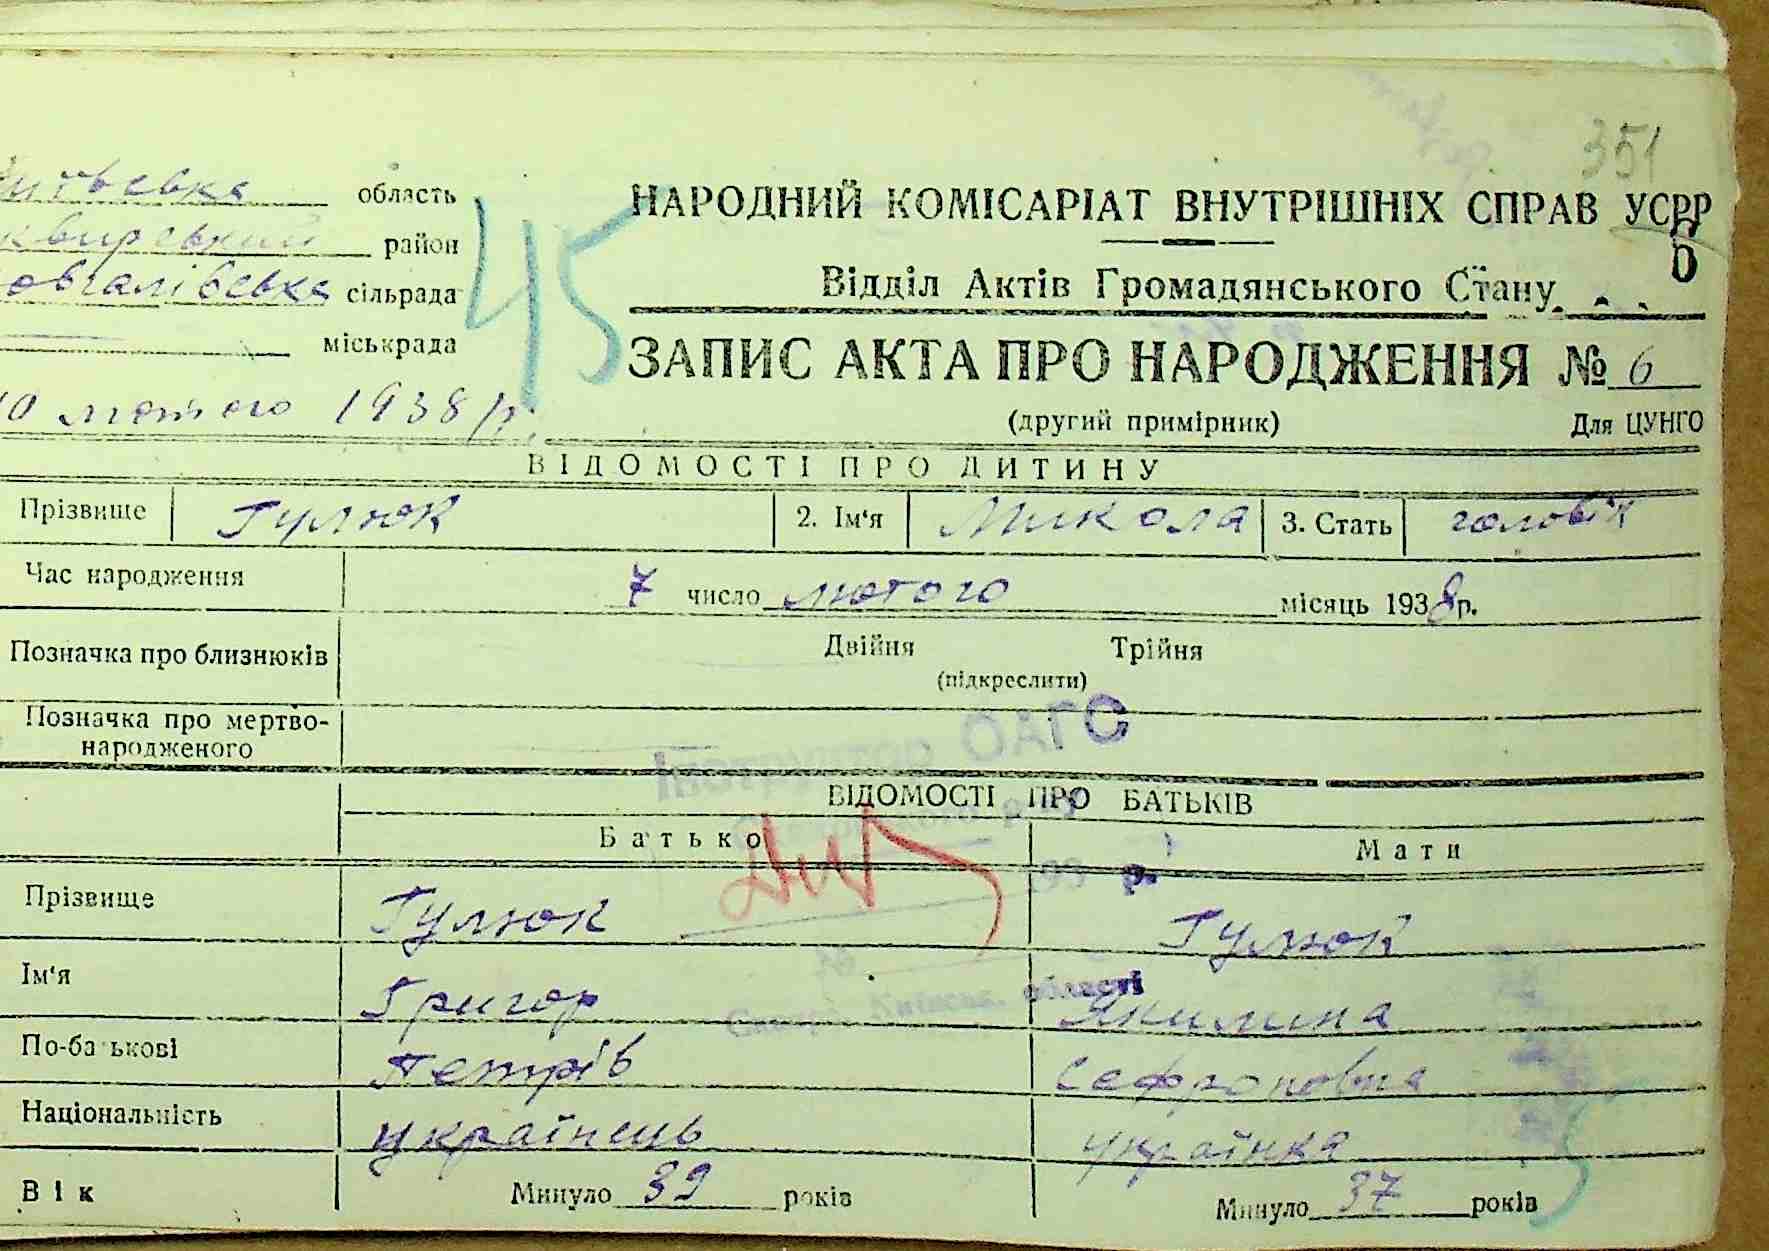 351
область
НАРОДНИЙ КОМІСАРІАТ ВНУТРІШНІХ СПРАВ УСРР
район
45
Відділ Актів Громадянського Стану
овгалівська сільрада
міськрада
ЗАПИС АКТА ПРО НАРОДЖЕННЯ № 6
10 лютого 1938 р.
(другий примірник) Для ЦУНГО
ВІДОМОСТІ ПРО ДИТИНУ
Прізвище Гулюк 2. Ім'я Микола 3. Стать чоловік
Час народження 7 число лютого місяць 1938р.
Позначка про близнюків Двійня Трійня
(підкреслити)
Позначка про мертво-
народженого
Інструктор ОАГС
ВІДОМОСТІ ПРО БАТЬКІВ
Батько Мати
193 р.
Прізвище Гулюк Гулюк
Ім'я Григор Якилина
області
По-батькові Петрів Сафроновна
Національність українець українка
Вік Минуло 39 років Минуло 37 років